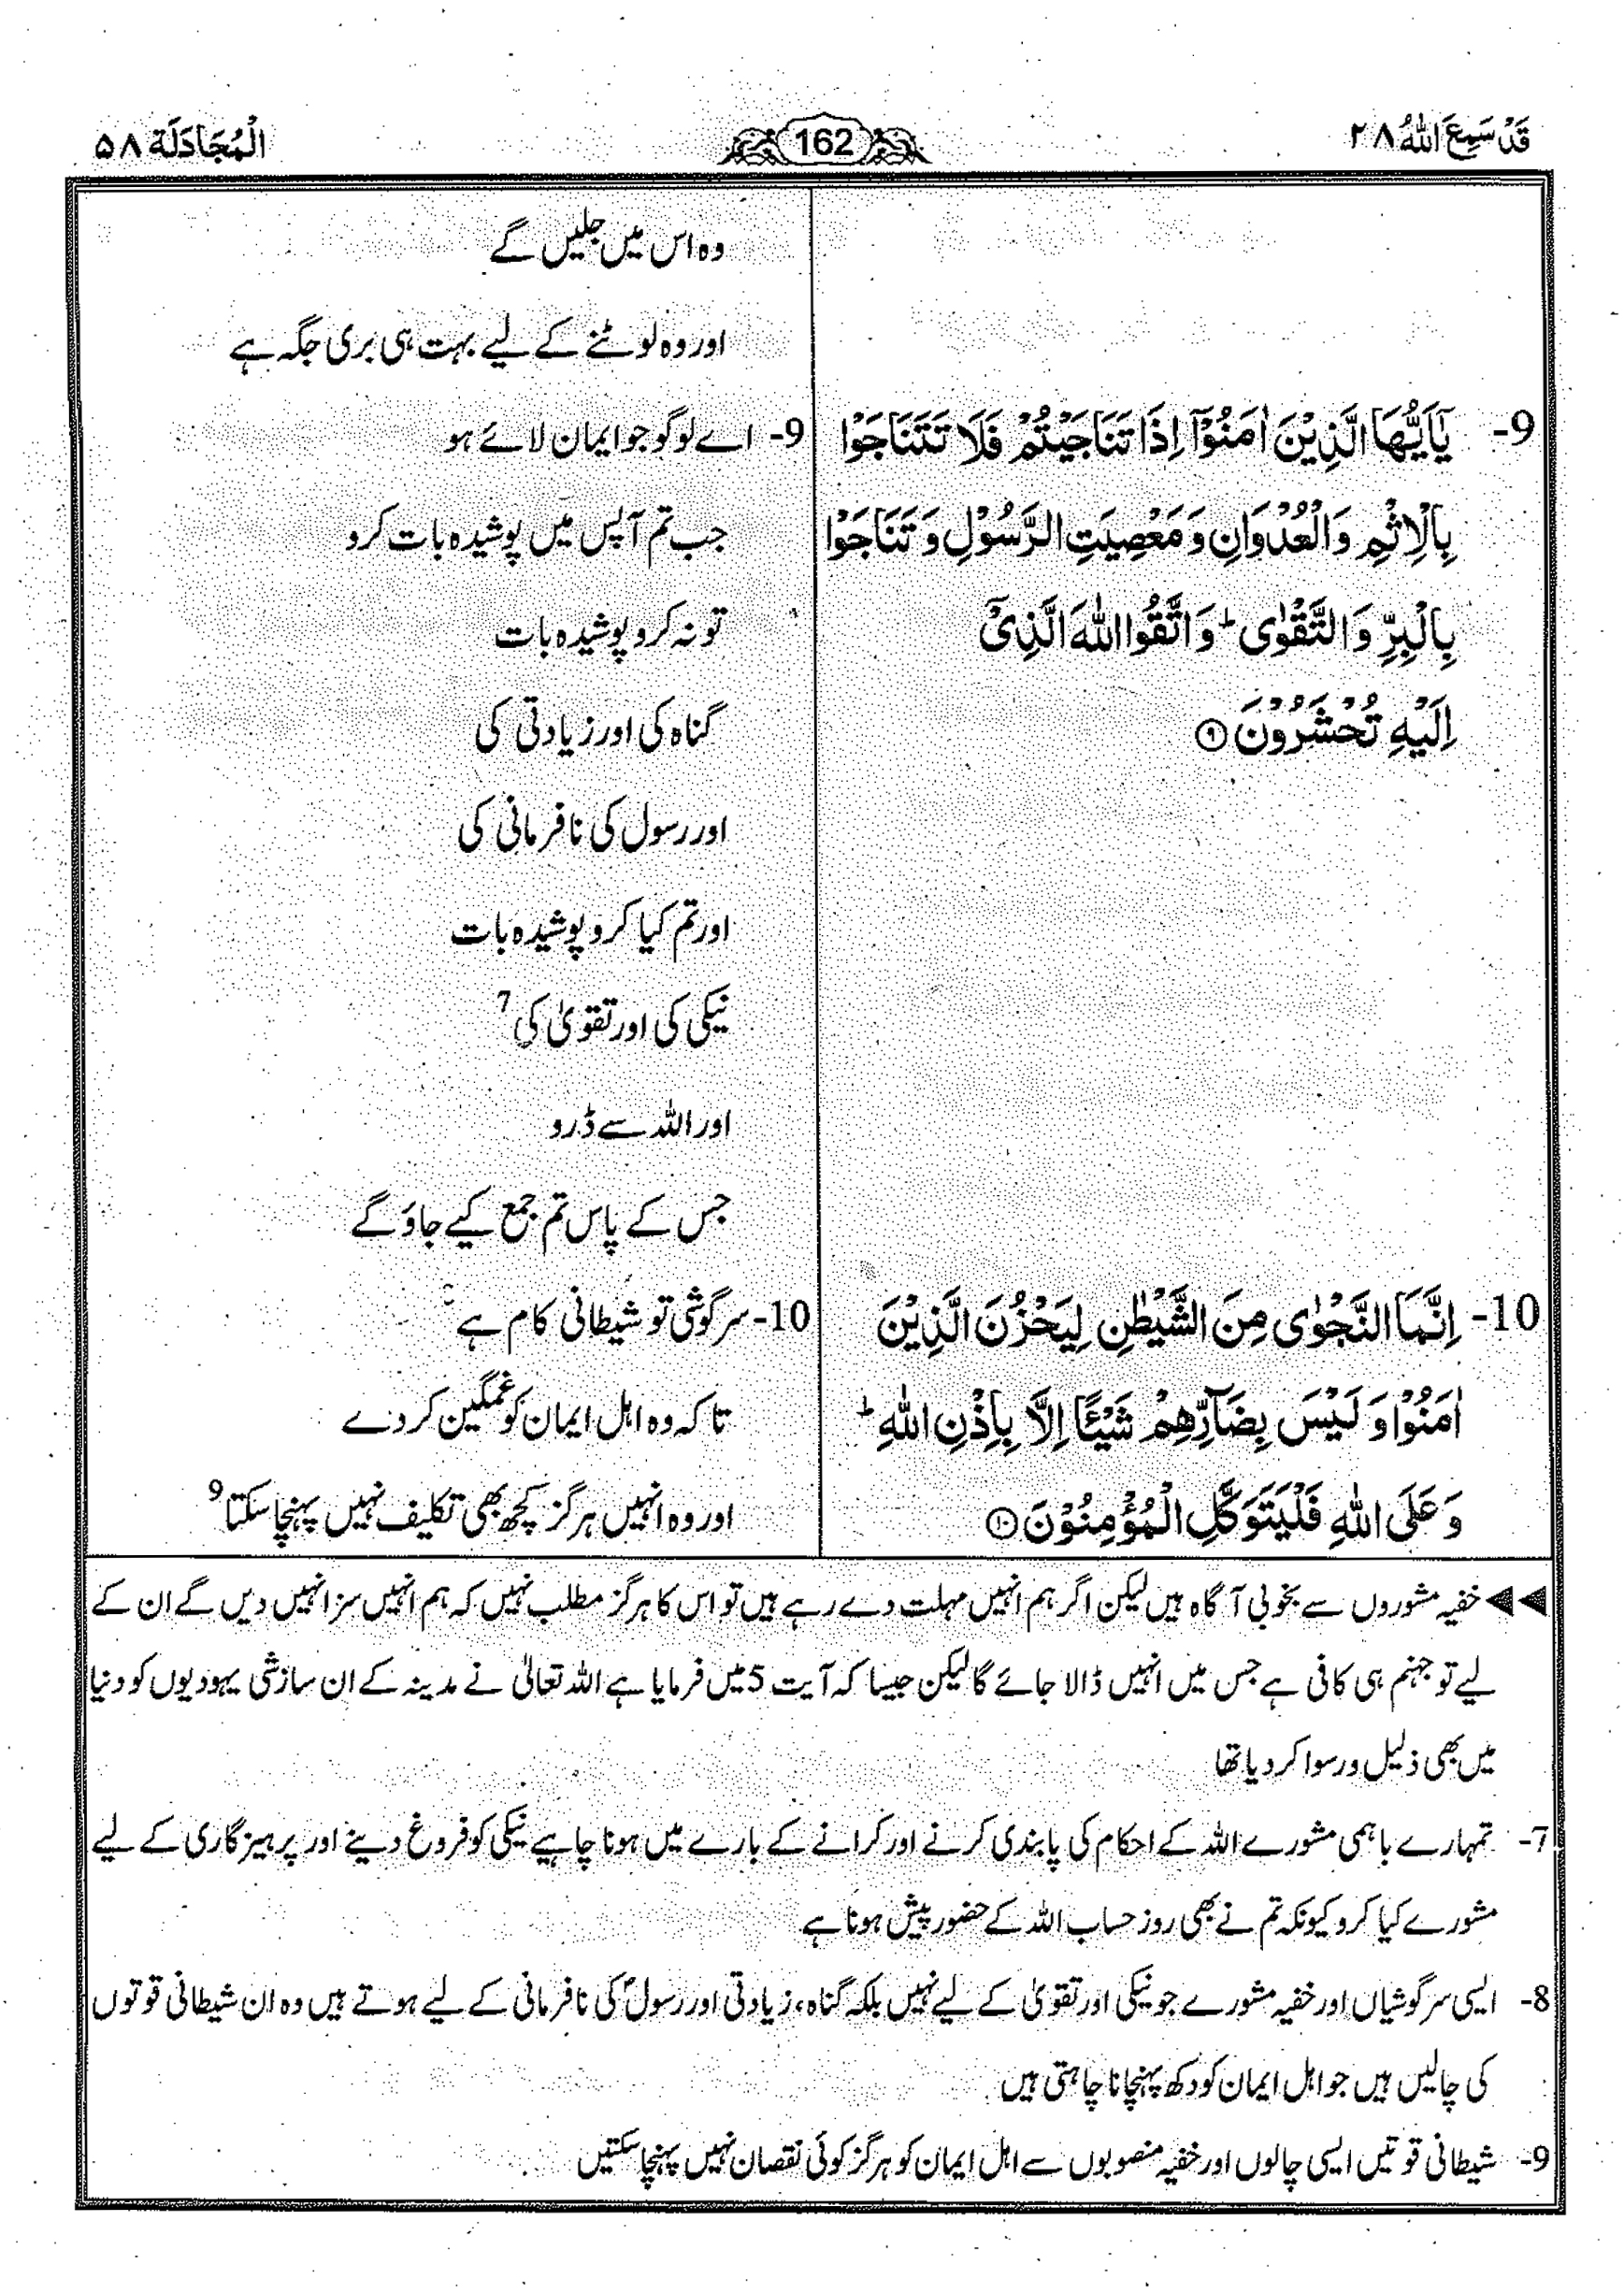 قَدْ سَمِعَ اللّٰهُ ۲۸
162
الْمُجَادَلَة ۵۸
وہ اس میں جلیں گے
اور وہ لوٹنے کے لیے بہت ہی بری جگہ ہے
9- يٰۤاَيُّهَا الَّذِيْنَ اٰمَنُوْۤا اِذَا تَنَاجَيْتُمْ فَلَا تَتَنَاجَوْا
بِالْاِثْمِ وَ الْعُدْوَانِ وَ مَعْصِيَتِ الرَّسُوْلِ وَ تَنَاجَوْا
بِالْبِرِّ وَ التَّقْوٰى ؕ وَ اتَّقُوا اللّٰهَ الَّذِيْۤ
اِلَيْهِ تُحْشَرُوْنَ ۹
9- اے لوگو جو ایمان لائے ہو
جب تم آپس میں پوشیدہ بات کرو
تو نہ کرو پوشیدہ بات
گناہ کی اور زیادتی کی
اور رسول کی نافرمانی کی
اور تم کیا کرو پوشیدہ بات
نیکی کی اور تقویٰ کی 7
اور اللہ سے ڈرو
جس کے پاس تم جمع کیے جاؤ گے
10- اِنَّمَا النَّجْوٰى مِنَ الشَّيْطٰنِ لِيَحْزُنَ الَّذِيْنَ
اٰمَنُوْا وَ لَيْسَ بِضَآرِّهِمْ شَيْئًا اِلَّا بِاِذْنِ اللّٰهِ ؕ
وَ عَلَى اللّٰهِ فَلْيَتَوَكَّلِ الْمُؤْمِنُوْنَ ۱۰
10- سرگوشی تو شیطانی کام ہے
تاکہ وہ اہل ایمان کو غمگین کر دے
اور وہ انہیں ہرگز کچھ بھی تکلیف نہیں پہنچا سکتا 9
◀◀ خفیہ مشوروں سے بخوبی آگاہ ہیں لیکن اگر ہم انہیں مہلت دے رہے ہیں تو اس کا ہرگز مطلب نہیں کہ ہم انہیں سزا نہیں دیں گے ان کے
لیے تو جہنم ہی کافی ہے جس میں انہیں ڈالا جائے گا لیکن جیسا کہ آیت 5 میں فرمایا ہے اللہ تعالیٰ نے مدینہ کے ان سازشی یہودیوں کو دنیا
میں بھی ذلیل و رسوا کر دیا تھا
7- تمہارے باہمی مشورے اللہ کے احکام کی پابندی کرنے اور کرانے کے بارے میں ہونا چاہیے نیکی کو فروغ دینے اور پرہیزگاری کے لیے
مشورے کیا کرو کیونکہ تم نے بھی روز حساب اللہ کے حضور پیش ہونا ہے
8- ایسی سرگوشیاں اور خفیہ مشورے جو نیکی اور تقویٰ کے لیے نہیں بلکہ گناہ، زیادتی اور رسولؐ کی نافرمانی کے لیے ہوتے ہیں وہ ان شیطانی قوتوں
کی چالیں ہیں جو اہل ایمان کو دکھ پہنچانا چاہتی ہیں
9- شیطانی قوتیں ایسی چالوں اور خفیہ منصوبوں سے اہل ایمان کو ہرگز کوئی نقصان نہیں پہنچا سکتیں